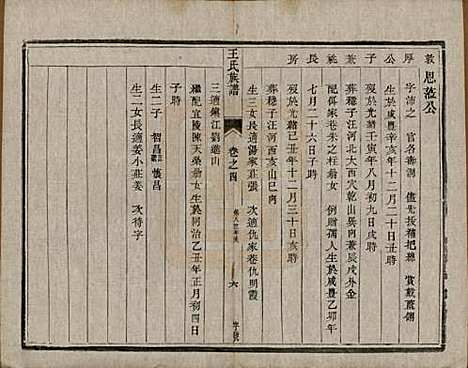 敦厚公子兼祧長房
恩蓤公
字沛之 官名壽澍 儘先拔補把總 賞戴藍翎
生於咸豐辛亥年十二月二十日丑時
歿於光緒壬寅年八月初九日戌時
葬穩子汪河北大西穴乾山巽向兼辰戌外金
配仇家巷朱之柱翁女 例贈孺人 生於咸豐乙卯年
七月二十六日子時
歿於光緒己丑年十二月三十日亥時
葬穩子汪河西亥山巳向
生三女長適湯家莊張 次適仇家巷仇明霞
王氏族譜
卷之四
六
三適鎮江劉繼山
繼配宜陵陳天榮翁女 生於同治乙丑年正月初四日
子時
生二子 智昌 懷昌
生二女長適姜小莊姜 次待字